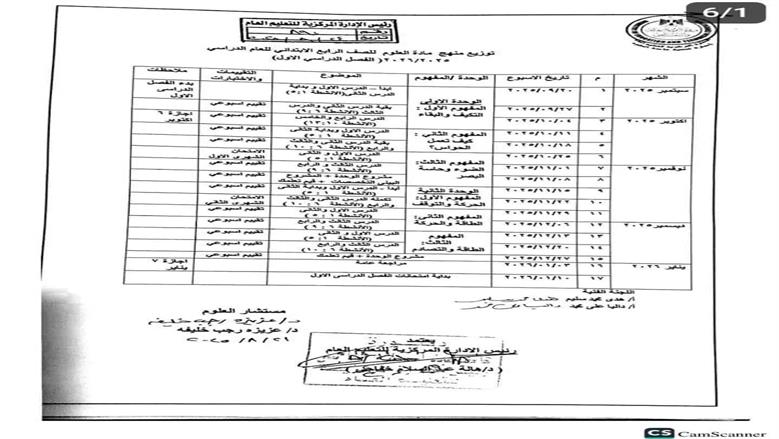 6/1
رئيس الإدارة المركزية للتعليم العام
توزيع منهج مادة العلوم للصف الرابع الابتدائي للعام الدراسي
٢٠٢٦/٢٠٢٥ (الفصل الدراسي الأول)
الشهر م تاريخ الاسبوع الوحدة /المفهوم الموضوع التقييمات والاختبارات ملاحظات
سبتمبر ٢٠٢٥ ١ ٢٠٢٥/٠٩/٢٠ الوحدة الاولى ابدا – الدرس الاول وبداية الدرس الثانى(الأنشطة ١:٥) بدء الفصل الدراسى الاول
٢ ٢٠٢٥/٠٩/٢٧ المفهوم الأول: التكيف والبقاء بقية الدرس الثانى والدرس الثالث (الأنشطة ٦:٩) تقييم اسبوعي
اكتوبر ٢٠٢٥ ٣ ٢٠٢٥/١٠/٠٤ الدرس الرابع والخامس (الأنشطة ١٠:١٣) تقييم اسبوعي اجازة ٦ اكتوبر
٤ ٢٠٢٥/١٠/١١ المفهوم الثاني: كيف تعمل الحواس؟ الدرس الاول وبداية الثانى (الأنشطة ١:٥) تقييم اسبوعي
٥ ٢٠٢٥/١٠/١٨ بقية الدرس الثانى والثالث والرابع (الأنشطة ٦:١٠) تقييم اسبوعي
٦ ٢٠٢٥/١٠/٢٥ المفهوم الثالث: الضوء وحاسة البصر الدرس الأول و الثانى (الأنشطة ١:٥) الامتحان الشهرى الأول
نوفمبر ٢٠٢٥ ٧ ٢٠٢٥/١١/٠١ الدرس الثالث و الرابع (الأنشطة ٦:٩) تقييم اسبوعي
٨ ٢٠٢٥/١١/٠٨ مشروع الوحدة + المشروع البينى التخصصات + قيم تعلمك تقييم اسبوعي
٩ ٢٠٢٥/١١/١٥ الوحدة الثانية المفهوم الأول: الحركة والتوقف ابدا – الدرس الاول وبداية الثانى (الأنشطة ١:٥) تقييم اسبوعي
١٠ ٢٠٢٥/١١/٢٢ تكملة الدرس الثانى والثالث والرابع (الأنشطة ٦:١٠) الامتحان الشهرى الثانى
١١ ٢٠٢٥/١١/٢٩ المفهوم الثاني: الطاقة والحركة الدرس الاول والثانى (الأنشطة ١:٥) تقييم اسبوعي
ديسمبر ٢٠٢٥ ١٢ ٢٠٢٥/١٢/٠٦ الدرس الثالث و الرابع تقييم اسبوعي
١٣ ٢٠٢٥/١٢/١٣ المفهوم الثالث: الطاقة والتصادم الدرس الأول و الثانى (الأنشطة ١:٥) تقييم اسبوعي
١٤ ٢٠٢٥/١٢/٢٠ الدرس الثالث والرابع (الأنشطة ٦:١٠) تقييم اسبوعي
١٥ ٢٠٢٥/١٢/٢٧ مشروع الوحدة + قيم تعلمك تقييم اسبوعي
يناير ٢٠٢٦ ١٦ ٢٠٢٦/٠١/٠٣ مراجعة عامة اجازة ٧ يناير
١٧ ٢٠٢٦/٠١/١٠ بداية امتحانات الفصل الدراسى الاول
اللجنة الفنية
أ/ هدى محمد سليم
أ/ داليا على محمد
مستشار العلوم
د/ عزيزه رجب خليفه
د/ عزيزه رجب خليفه
٢٠٢٥/٨/٢١
يعتمد
رئيس الادارة المركزية للتعليم العام
(د/هالة عبد السلام خفاجى)
CS CamScanner